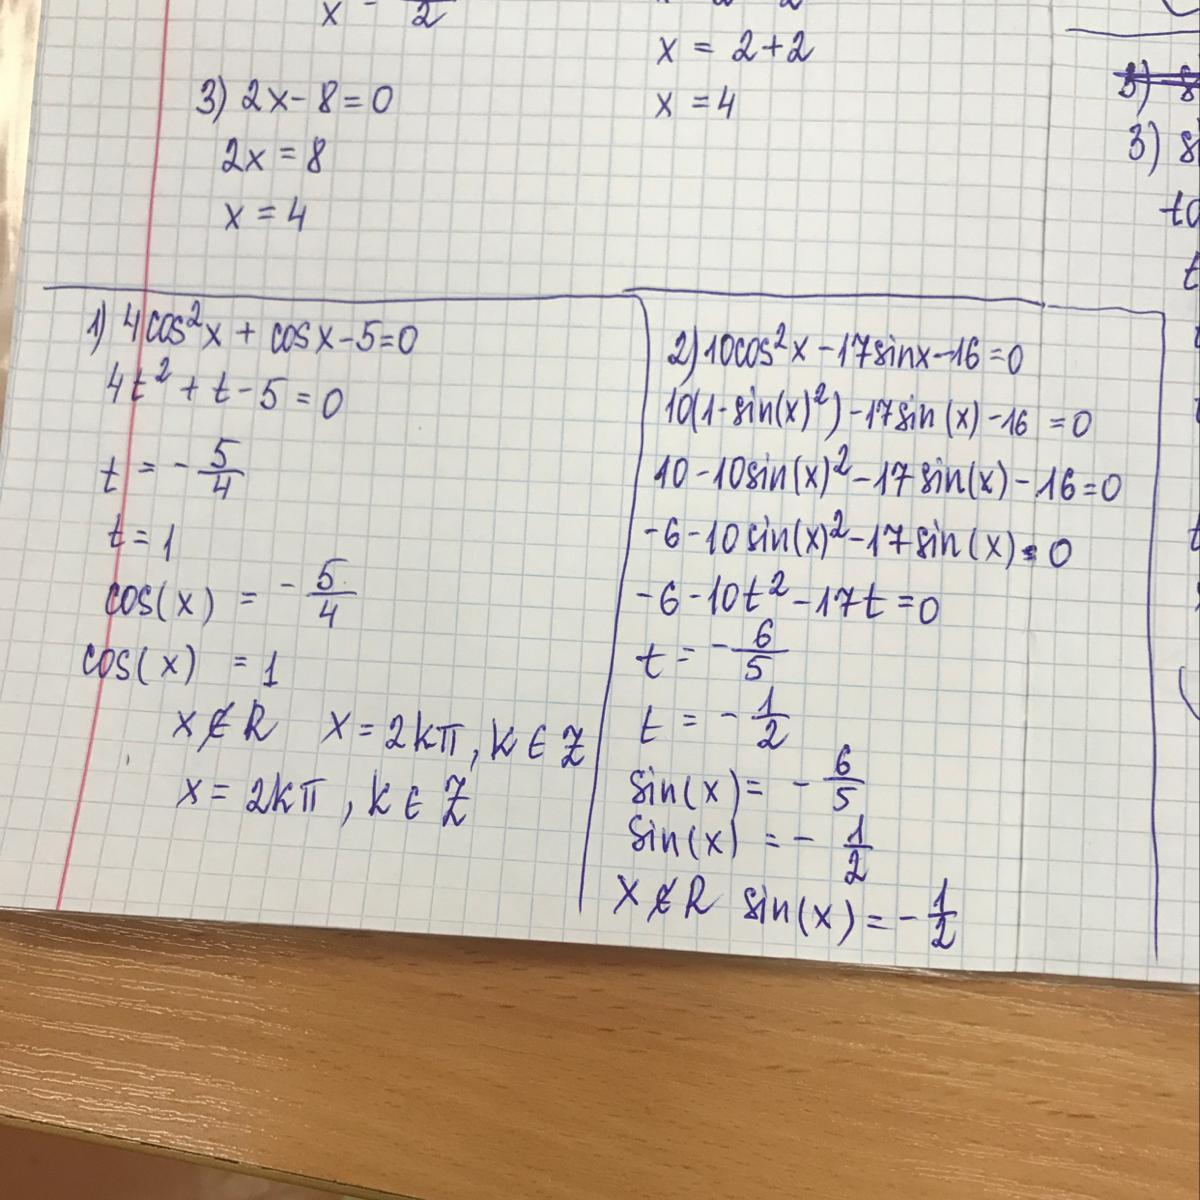 x = 2
x = 2+2
x = 4
3) 2x-8=0
2x = 8
x = 4
1) 4cos²x + cosx-5=0
4t² + t-5=0
t = -5/4
t=1
cos(x) = -5/4
cos(x) = 1
x∉R x=2kπ, k∈Z
x=2kπ, k∈Z
2) 10cos²x-17sinx-16=0
10(1-sin(x)²)-17sin(x)-16=0
10-10sin(x)²-17sin(x)-16=0
-6-10sin(x)²-17sin(x)=0
-6-10t²-17t=0
t = -6/5
t = -1/2
sin(x)= -6/5
sin(x) = -1/2
x∉R sin(x)=-1/2
3)
t